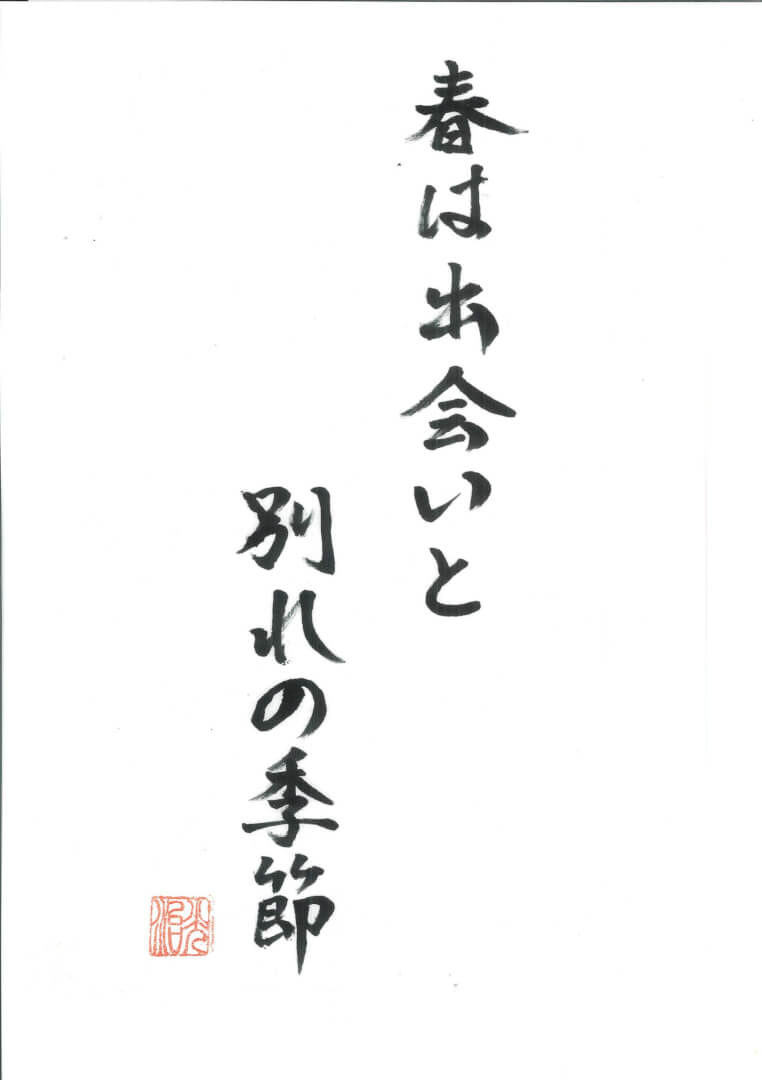 春は出会いと
別れの季節